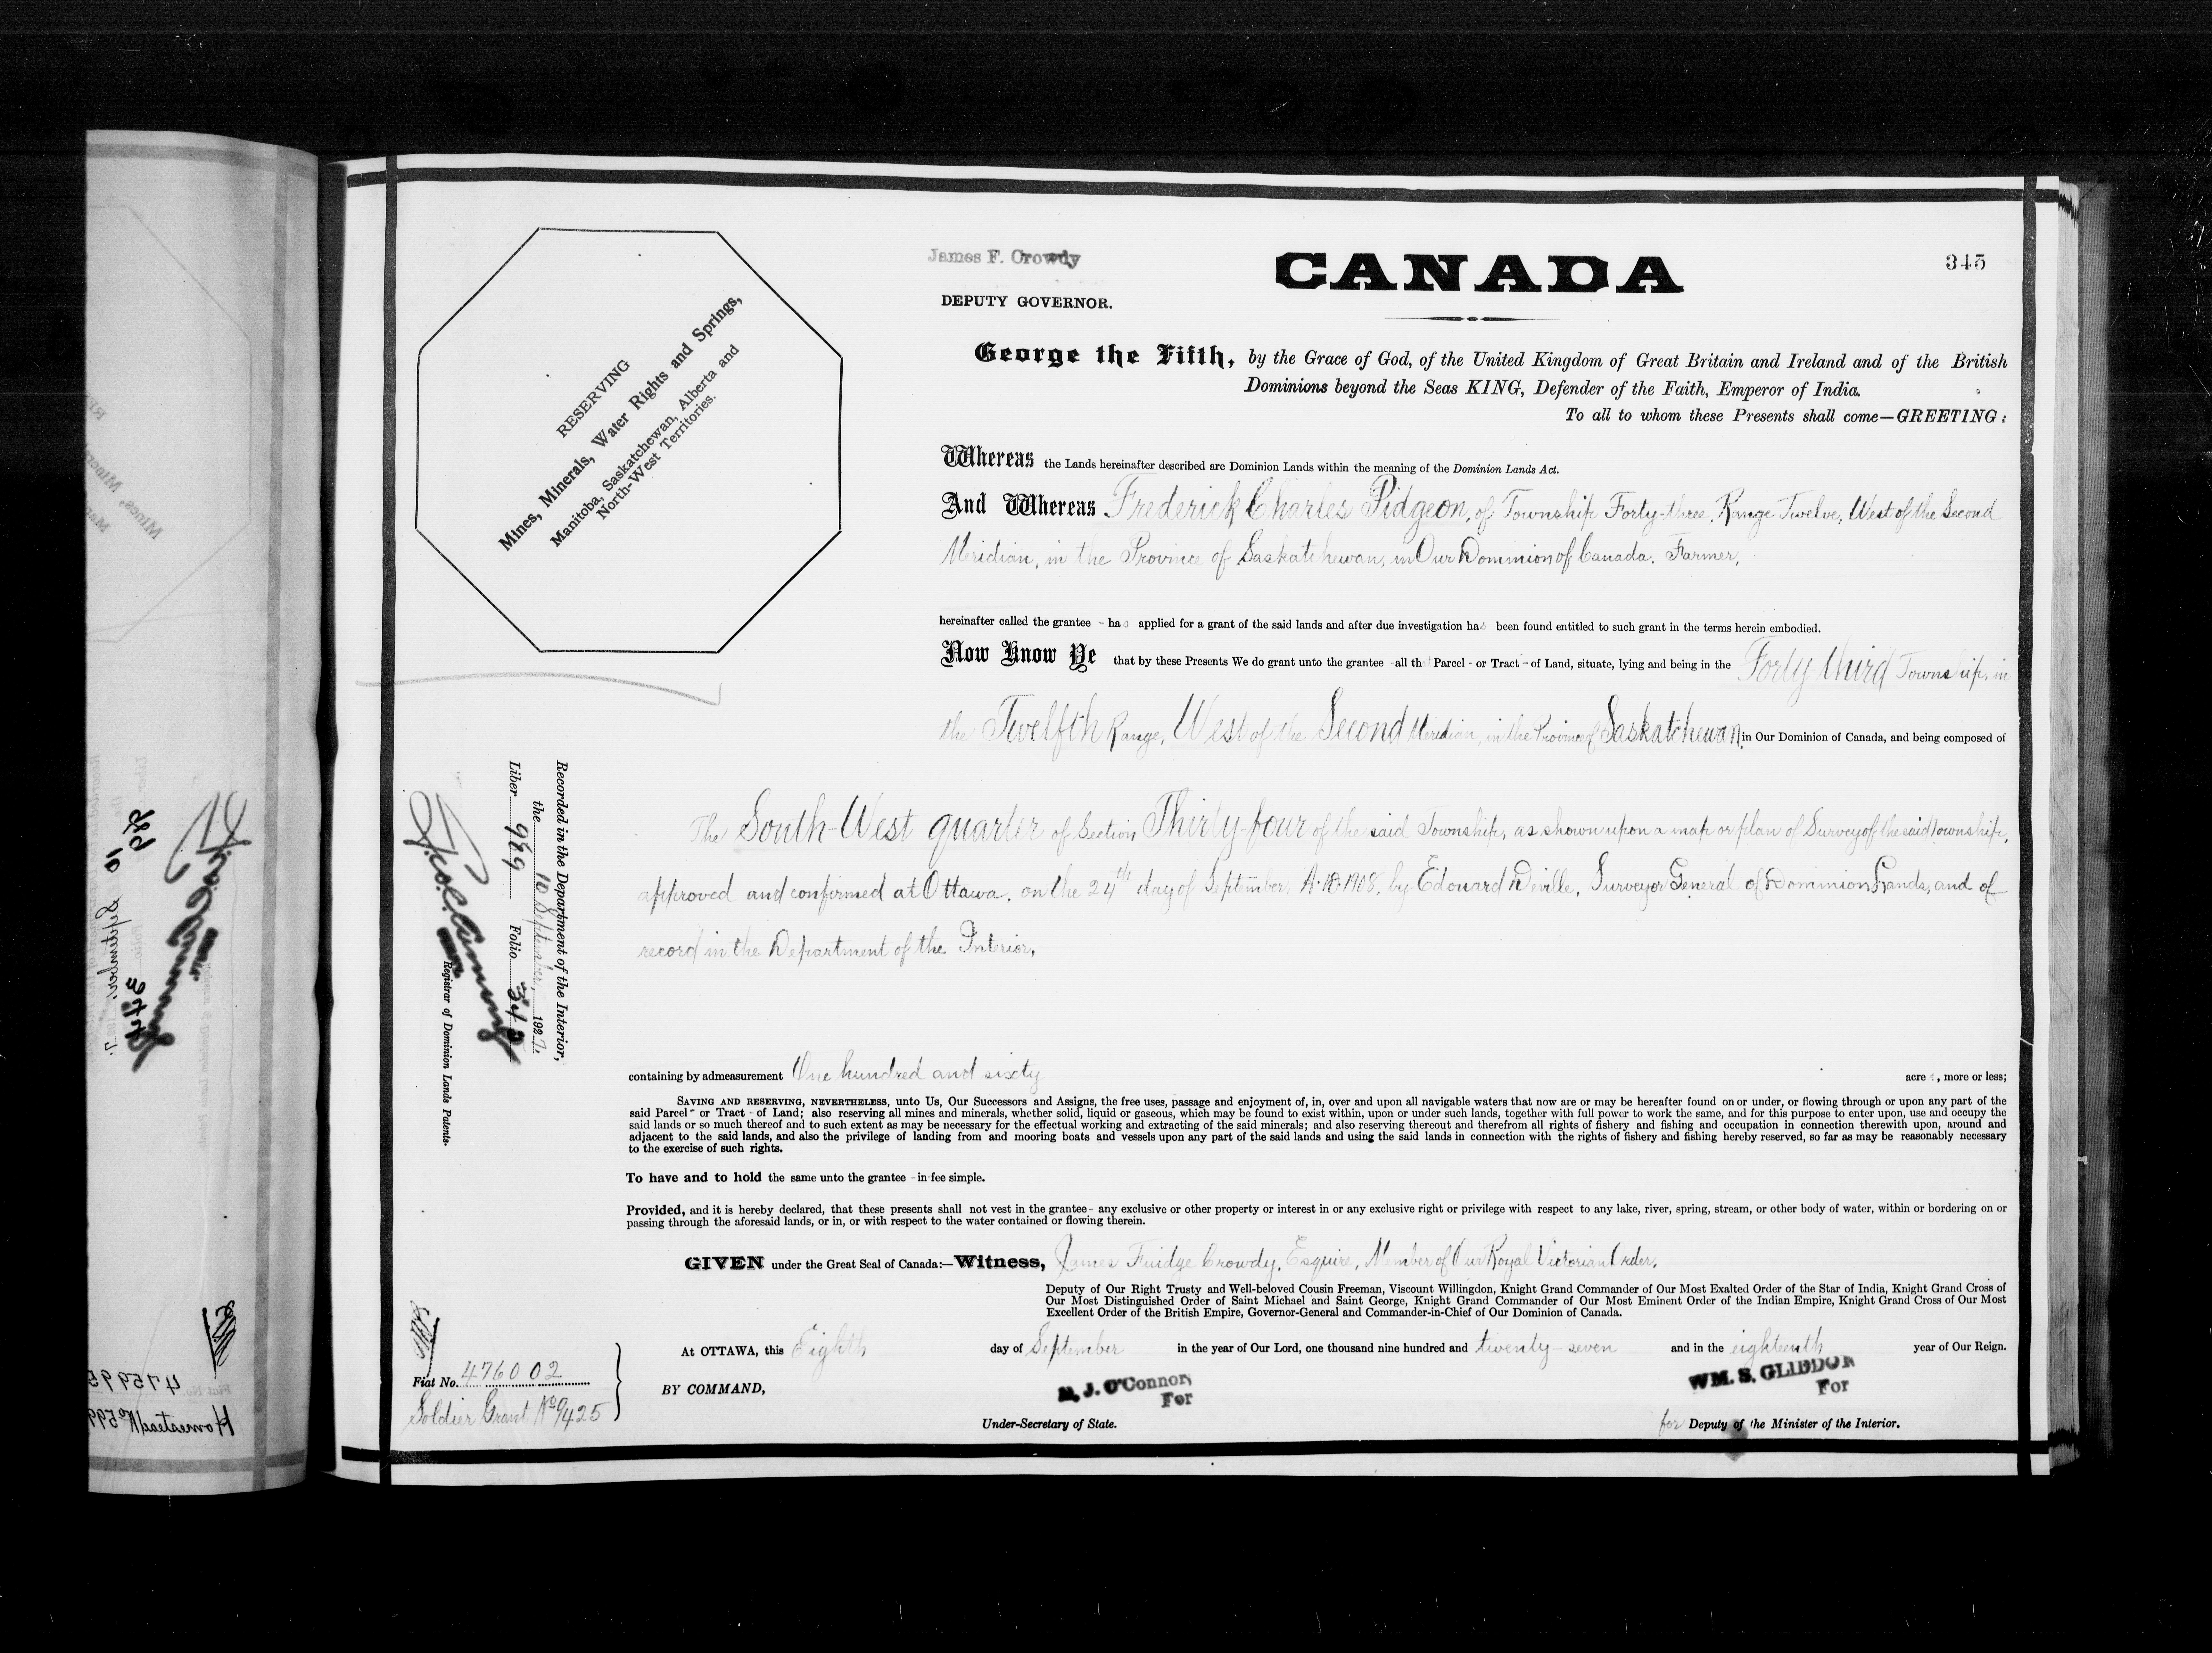 James F. Crowdy
DEPUTY GOVERNOR.
CANADA
345
RESERVING
Mines, Minerals, Water Rights and Springs,
Manitoba, Saskatchewan, Alberta and
North-West Territories.
George the Fifth, by the Grace of God, of the United Kingdom of Great Britain and Ireland and of the British
Dominions beyond the Seas KING, Defender of the Faith, Emperor of India.
To all to whom these Presents shall come—GREETING:
Whereas the Lands hereinafter described are Dominion Lands within the meaning of the Dominion Lands Act.
And Whereas Frederick Charles Pidgeon, of Township Forty-three, Range Twelve, West of the Second
Meridian, in the Province of Saskatchewan, in Our Dominion of Canada. Farmer,
hereinafter called the grantee - has applied for a grant of the said lands and after due investigation has been found entitled to such grant in the terms herein embodied.
Now Know Ye that by these Presents We do grant unto the grantee - all th Parcel - or Tract - of Land, situate, lying and being in the Forty third Township, in
the Twelfth Range, West of the Second Meridian, in the Province of Saskatchewan, in Our Dominion of Canada, and being composed of
The South-West quarter of Section Thirty-four of the said Township, as shown upon a map or plan of Survey of the said Township,
approved and confirmed at Ottawa, on the 24th day of September, A.D. 1908, by Edouard Deville, Surveyor General of Dominion Lands, and of
record in the Department of the Interior,
Recorded in the Department of the Interior,
the 10 September, 1927.
Liber 989 Folio 345
Registrar of Dominion Lands Patents.
containing by admeasurement One hundred and sixty acres, more or less;
SAVING AND RESERVING, NEVERTHELESS, unto Us, Our Successors and Assigns, the free uses, passage and enjoyment of, in, over and upon all navigable waters that now are or may be hereafter found on or under, or flowing through or upon any part of the
said Parcel - or Tract - of Land; also reserving all mines and minerals, whether solid, liquid or gaseous, which may be found to exist within, upon or under such lands, together with full power to work the same, and for this purpose to enter upon, use and occupy the
said lands or so much thereof and to such extent as may be necessary for the effectual working and extracting of the said minerals; and also reserving thereout and therefrom all rights of fishery and fishing and occupation in connection therewith upon, around and
adjacent to the said lands, and also the privilege of landing from and mooring boats and vessels upon any part of the said lands and using the said lands in connection with the rights of fishery and fishing hereby reserved, so far as may be reasonably necessary
to the exercise of such rights.
To have and to hold the same unto the grantee - in fee simple.
Provided, and it is hereby declared, that these presents shall not vest in the grantee - any exclusive or other property or interest in or any exclusive right or privilege with respect to any lake, river, spring, stream, or other body of water, within or bordering on or
passing through the aforesaid lands, or in, or with respect to the water contained or flowing therein.
GIVEN under the Great Seal of Canada:—Witness, James Fuidge Crowdy, Esquire, Member of Our Royal Victorian Order,
Deputy of Our Right Trusty and Well-beloved Cousin Freeman, Viscount Willingdon, Knight Grand Commander of Our Most Exalted Order of the Star of India, Knight Grand Cross of
Our Most Distinguished Order of Saint Michael and Saint George, Knight Grand Commander of Our Most Eminent Order of the Indian Empire, Knight Grand Cross of Our Most
Excellent Order of the British Empire, Governor-General and Commander-in-Chief of Our Dominion of Canada.
At OTTAWA, this Eighth day of September in the year of Our Lord, one thousand nine hundred and twenty-seven and in the eighteenth year of Our Reign.
Fiat No. 476002
Soldier Grant No 9425
BY COMMAND,
M. J. O'Connor,
For
Under-Secretary of State.
WM. S. GLIDDON
For
for Deputy of the Minister of the Interior.